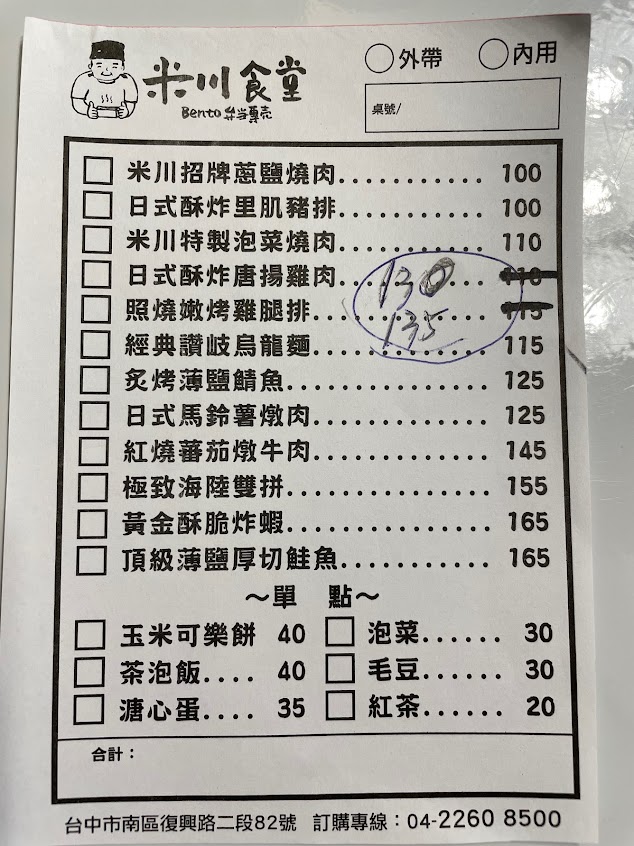 米川食堂
Bento 弁当專売
○外帶 ○內用
桌號/
□ 米川招牌蔥鹽燒肉........... 100
□ 日式酥炸里肌豬排........... 100
□ 米川特製泡菜燒肉........... 110
□ 日式酥炸唐揚雞肉........... 110
130
□ 照燒嫩烤雞腿排............. 115
135
□ 經典讚岐烏龍麵............. 115
□ 炙烤薄鹽鯖魚............... 125
□ 日式馬鈴薯燉肉............. 125
□ 紅燒蕃茄燉牛肉............. 145
□ 極致海陸雙拼............... 155
□ 黃金酥脆炸蝦............... 165
□ 頂級薄鹽厚切鮭魚........... 165
～單 點～
□ 玉米可樂餅 40 □ 泡菜...... 30
□ 茶泡飯.... 40 □ 毛豆...... 30
□ 溏心蛋.... 35 □ 紅茶...... 20
合計：
台中市南區復興路二段82號 訂購專線：04-2260 8500